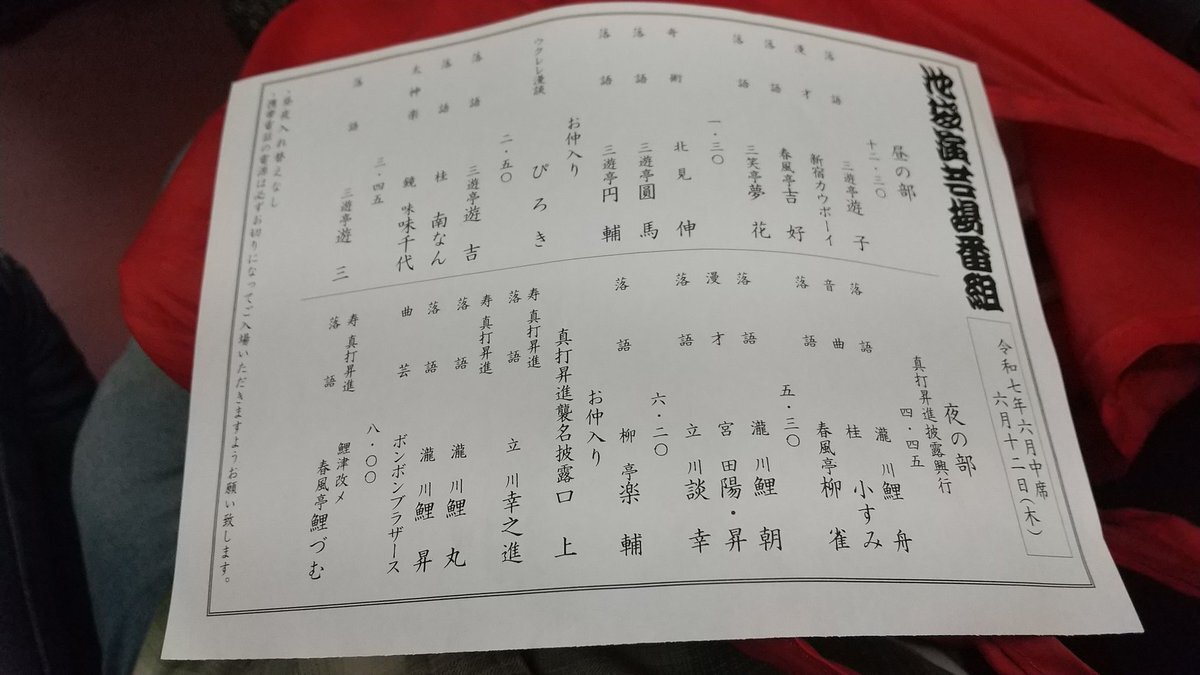 池袋演芸場番組
令和七年六月中席
六月十二日(木)
昼の部
十二・三〇
落語 三遊亭遊子
漫才 新宿カウボーイ
落語 春風亭吉好
落語 三笑亭夢花
一・三〇
奇術 北見伸
落語 三遊亭圓馬
落語 三遊亭円輔
お仲入り
ウクレレ漫談 ぴろき
二・五〇
落語 三遊亭遊吉
落語 桂南なん
太神楽 鏡味味千代
三・四五
落語 三遊亭遊三
夜の部
真打昇進披露興行
四・四五
落語 瀧川鯉舟
音曲 桂小すみ
落語 春風亭柳雀
五・三〇
落語 瀧川鯉朝
漫才 宮田陽・昇
落語 立川談幸
六・二〇
落語 柳亭楽輔
お仲入り
真打昇進襲名披露口上
寿 真打昇進
落語 立川幸之進
寿 真打昇進
落語 瀧川鯉丸
落語 瀧川鯉昇
曲芸 ボンボンブラザース
八・〇〇
寿 真打昇進 鯉津改メ
落語 春風亭鯉づむ
・昼夜入れ替えなし
・携帯電話の電源は必ずお切りになってご入場いただきますようお願い致します。